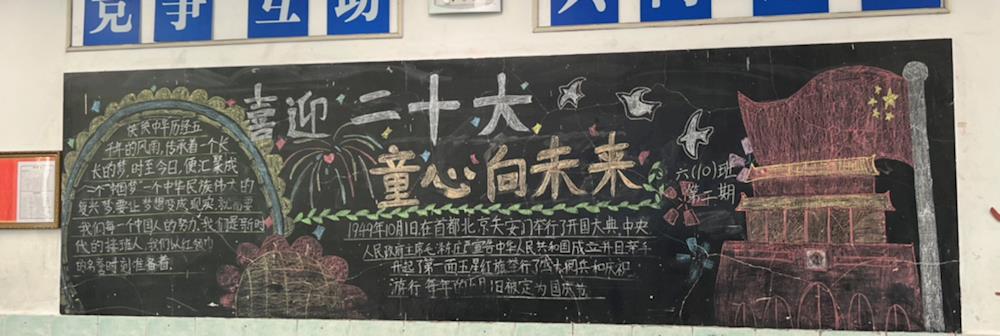 竞争互助
喜迎二十大
童心向未来
六(10)班
第二期
泱泱中华历经五
千年的风雨,传承着一个长
长的梦,时至今日,便汇聚成
一个"中国梦"一个中华民族伟大的
复兴梦,要让梦想变成现实,就需要
我们每一个中国人的努力,我们是新时
代的接班人,我们以红领巾
的名誉时刻准备着.
1949年10月1日在首都北京天安门举行了开国大典,中央
人民政府主席毛泽东庄严宣告中华人民共和国成立并且亲手
升起了第一面五星红旗举行了盛大阅兵和庆祝
游行 每年的10月1日被定为国庆节